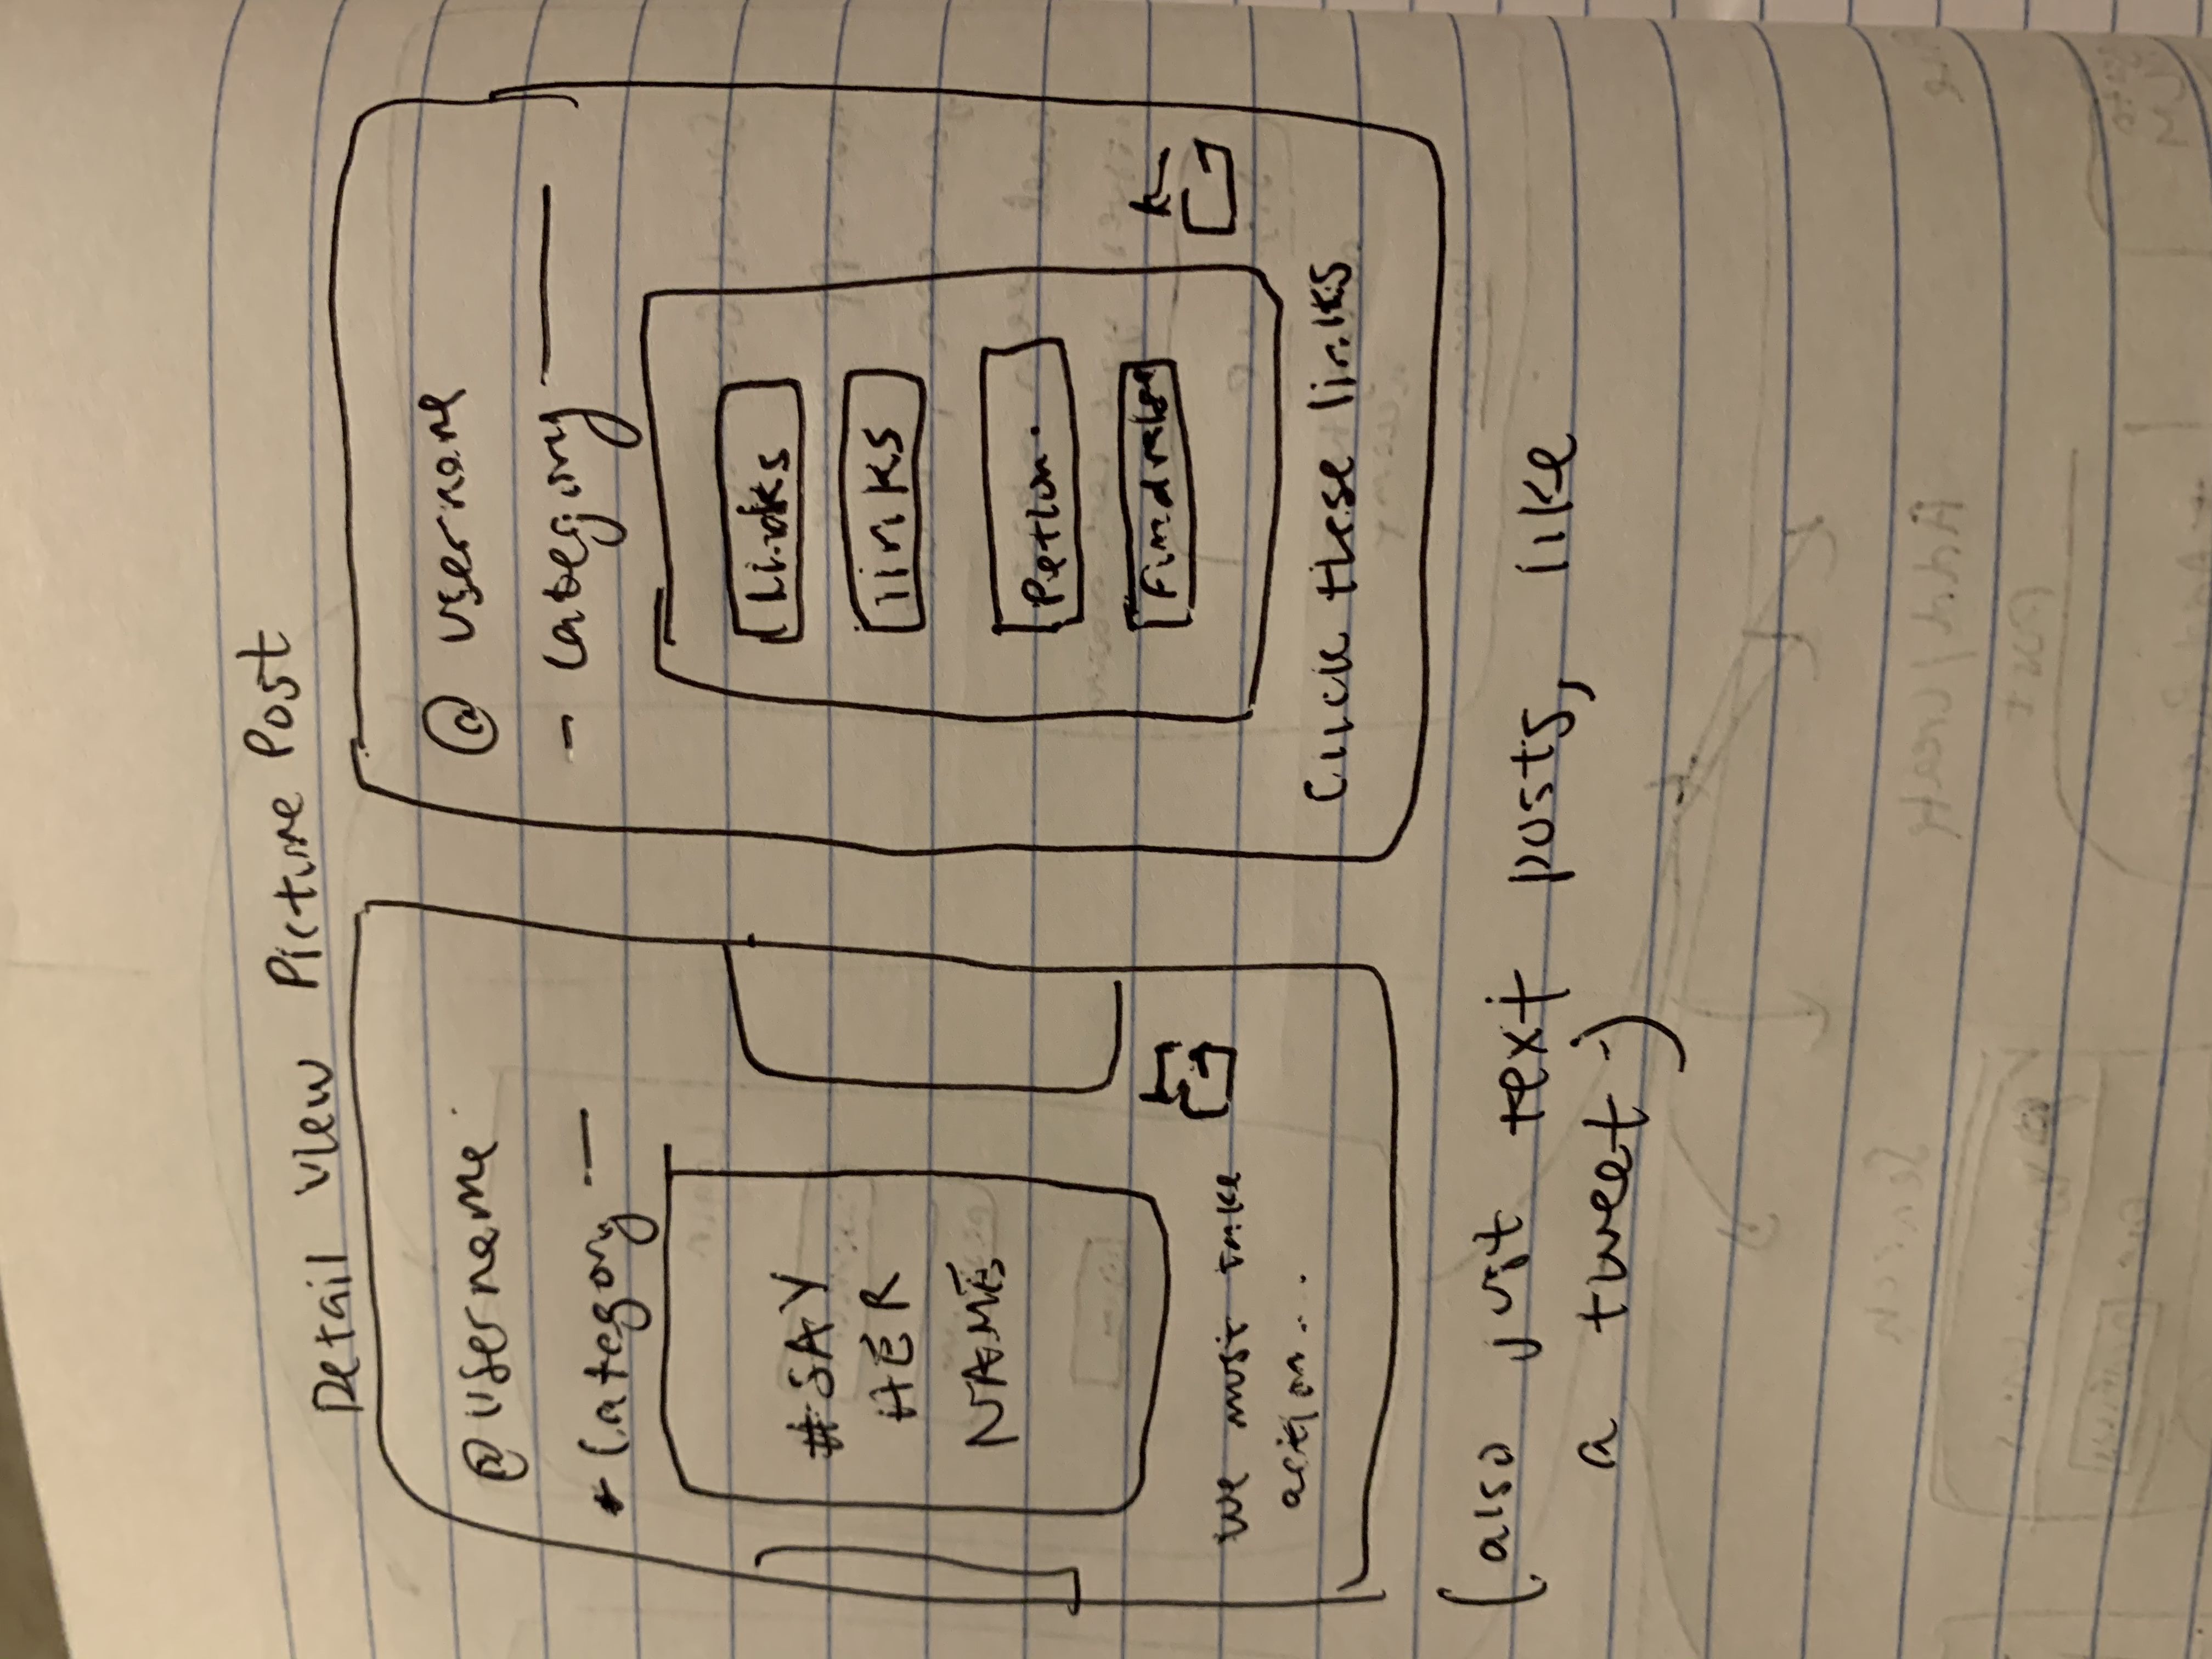 Detail View Picture Post
@username
Category —
#SAY
HER
NAME
We must take
action...
@ username
- Category —
Links
links
Petion.
Click these links
(also just text posts, like
a tweet.)
Search
Add/Create
Post